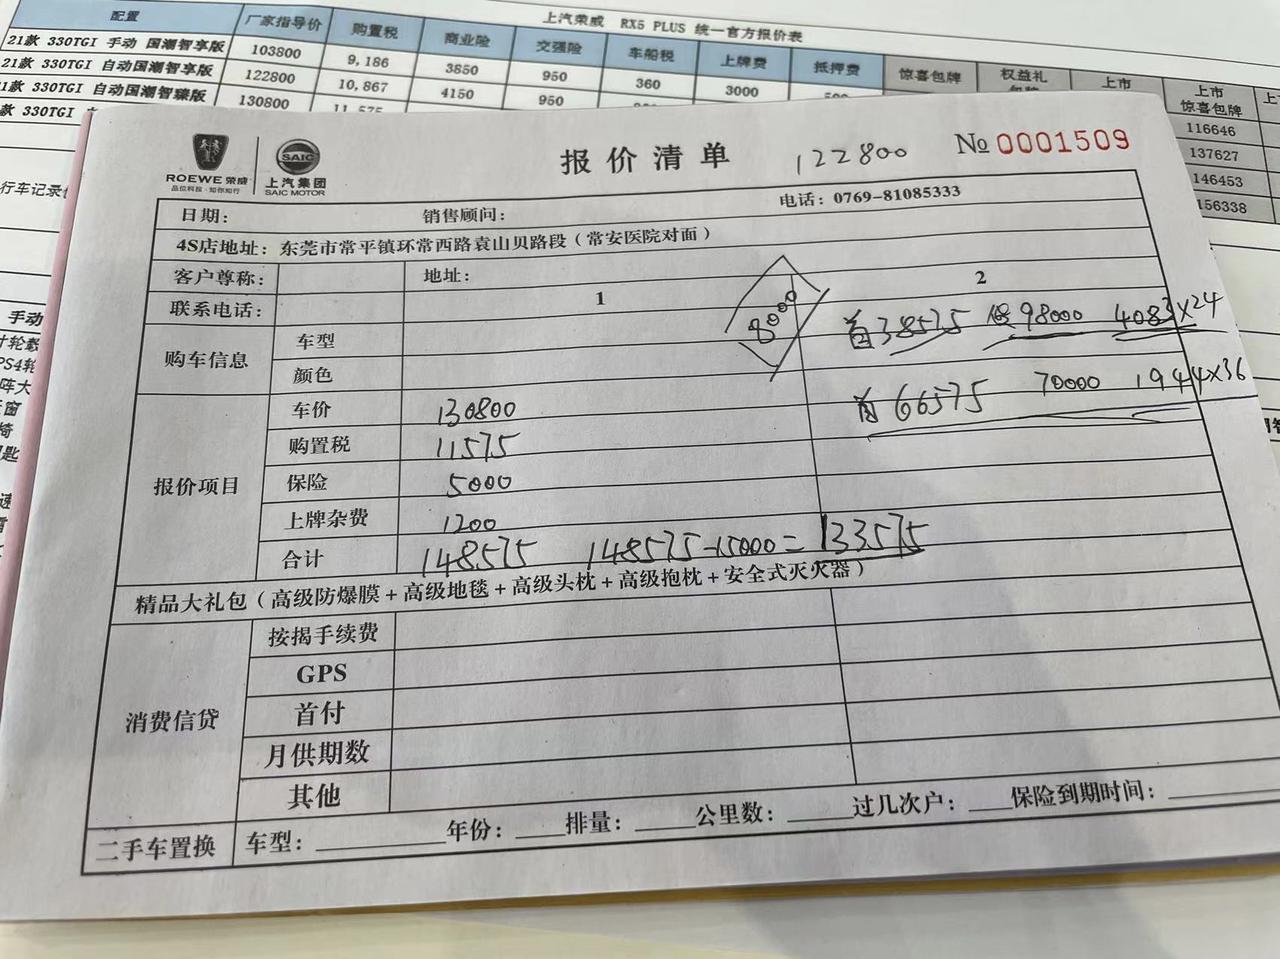 上汽荣威 RX5 PLUS 统一官方报价表
配置 厂家指导价 购置税 商业险 交强险 车船税 上牌费 抵押费 惊喜包牌 权益礼 上市 上市
惊喜包牌
21款 330TGI 手动 国潮智享版 103800 9,186 3850 950 360 3000 116646
21款 330TGI 自动国潮智享版 122800 10,867 4150 950 137627
款 330TGI 自动国潮智臻版 130800 11,575 146453
款 330TGI 156338
行车记录
手动
ROEWE 荣威
品位科技·知你知行
SAIC
上汽集团
SAIC MOTOR
报价清单
122800
№ 0001509
日期: 销售顾问: 电话: 0769-81085333
4S店地址: 东莞市常平镇环常西路袁山贝路段(常安医院对面)
客户尊称: 地址:
联系电话: 1 2
购车信息 车型 8000 首38575 贷98000 4083×24
颜色 首66575 70000 1944×36
报价项目 车价 130800
购置税 11575
保险 5000
上牌杂费 1200
合计 148575 148575-15000=133575
精品大礼包(高级防爆膜+高级地毯+高级头枕+高级抱枕+安全式灭火器)
消费信贷 按揭手续费
GPS
首付
月供期数
其他
二手车置换 车型: 年份: 排量: 公里数: 过几次户: 保险到期时间: